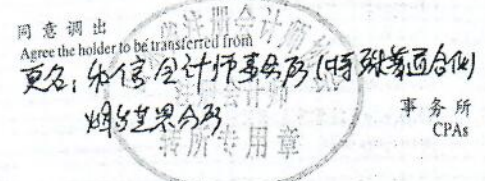 同意调出
Agree the holder to be transferred from
更名：和信会计师事务所(特殊普通合伙)
分所
事务所
CPAs
注册会计师
转所专用章